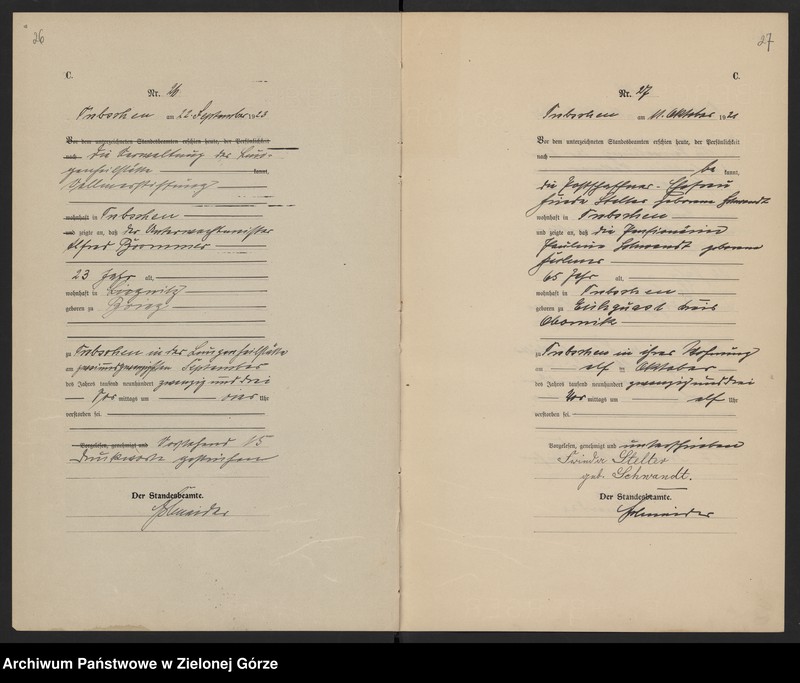 26
C.
Nr. 26
Tribschen am 22. September 1923
Vor dem unterzeichneten Standesbeamten erschien heute, der Persönlichkeit
nach die Verwaltung der Lun-
genheilstätte kannt,
wohnhaft in Tribschen
und zeigte an, daß der Unterwachtmeister
Alfred
23 Jahr alt,
wohnhaft in Liegnitz
geboren zu Brieg
zu Tribschen in der Lungenheilstätte
am September
des Jahres tausend neunhundert zwanzig und drei
Vor mittags um Uhr
verstorben sei.
Vorgelesen, genehmigt und Vorstehend 15
Druckworte gestrichen
Der Standesbeamte.
Schneider
27
C.
Nr. 27
Tribschen am 11. Oktober 19
Vor dem unterzeichneten Standesbeamten erschien heute, der Persönlichkeit
nach
be kannt,
die Postschaffner-Ehefrau
Frieda Stelter geborene Schwandt
wohnhaft in Tribschen
und zeigte an, daß die Pensionärin
Pauline Schwandt geborene
65 Jahr alt,
wohnhaft in Tribschen
geboren zu Kreis
Obornik
zu Tribschen in ihrer Wohnung
am elf ten Oktober
des Jahres tausend neunhundert zwanzig und drei
Vor mittags um elf Uhr
verstorben sei.
Vorgelesen, genehmigt und unterschrieben
Frieda Stelter
geb. Schwandt.
Der Standesbeamte.
Schneider
Archiwum Państwowe w Zielonej Górze